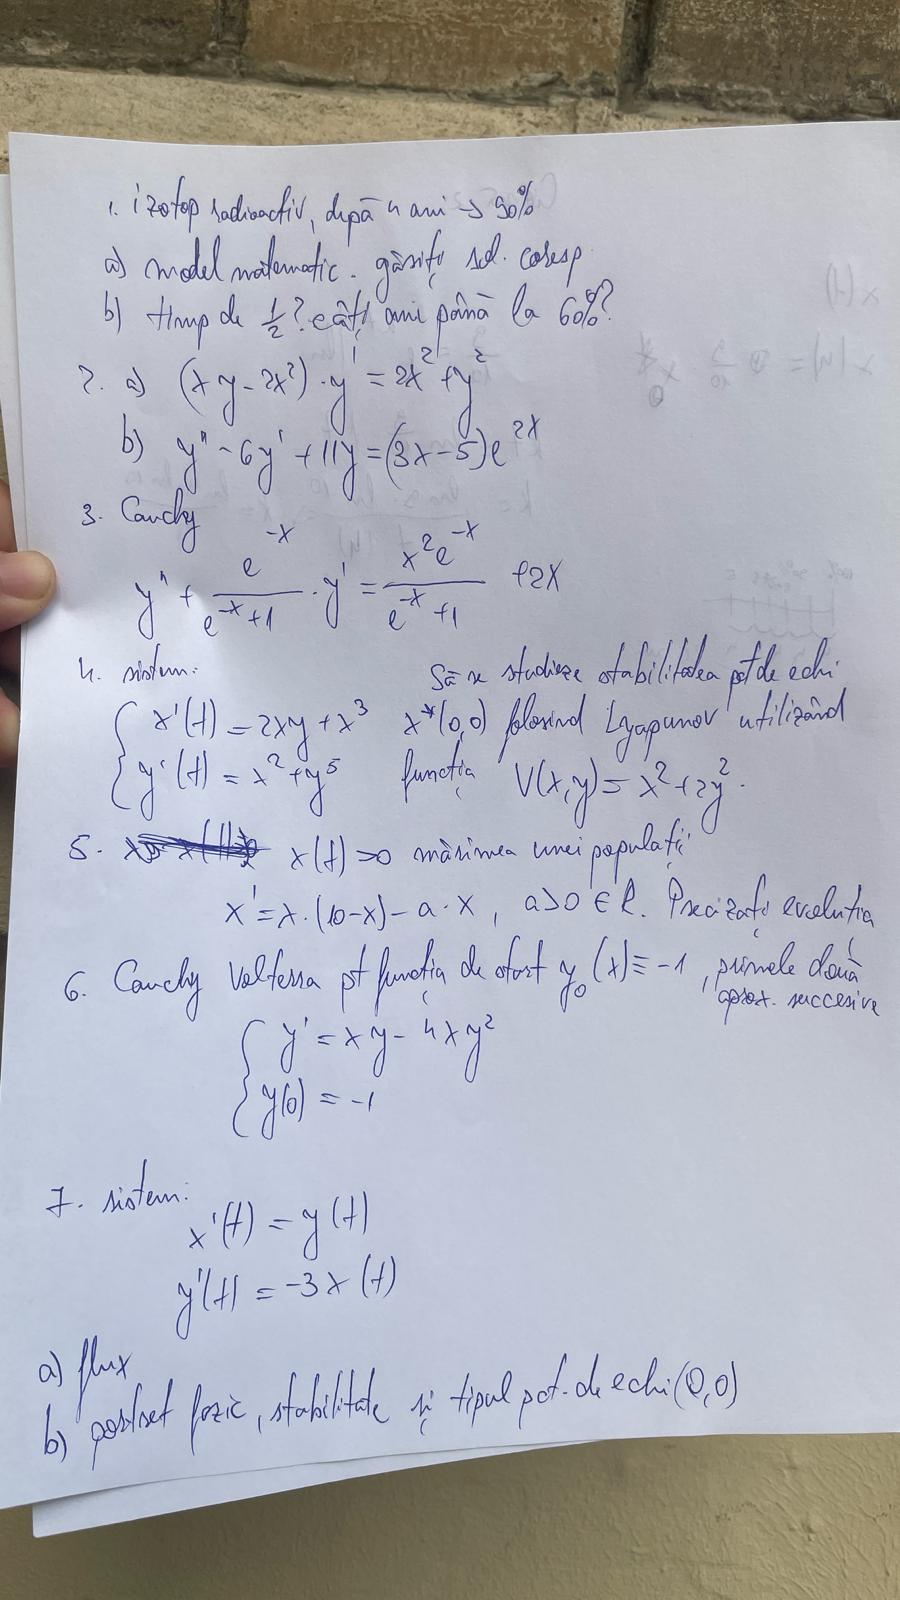 1. izotop radioactiv, după 4 ani → 90%
a) model matematic. găsiți sol. coresp.
b) timp de 1/2? câți ani până la 60%?
2. a) (xy - 2x²)·y' = 2x² + y²
b) y'' - 6y' + 11y = (3x - 5)e^{2x}
3. Cauchy
y'' + e^{-x}/(e^{-x}+1) · y' = x²e^{-x}/(e^{-x}+1) + 2x
4. sistem: Să se studieze stabilitatea pct de echi
{ x'(t) = 2xy + x³ x*(0,0) folosind Lyapunov utilizând
{ y'(t) = x² + y⁵ funcția V(x,y) = x² + 2y².
5. x(t) >0 mărimea unei populații
x' = x·(10-x) - a·x, a>0 ∈ R. Precizați evoluția
6. Cauchy Volterra pt funcția de start y₀(x) ≡ -1, primele două
aprox. succesive
{ y' = xy - 4xy²
{ y(0) = -1
7. sistem:
x'(t) = y(t)
y'(t) = -3x(t)
a) flux
b) portret fazic, stabilitate și tipul pct. de echi (0,0)